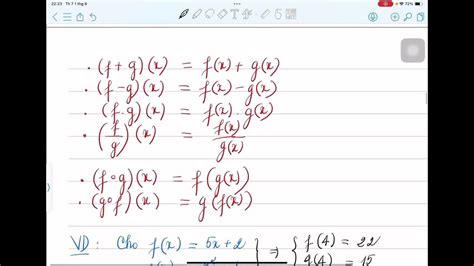 22:23 Th 7 1 thg 8
72%
• (f + g)(x) = f(x) + g(x)
• (f - g)(x) = f(x) - g(x)
• (f . g)(x) = f(x) . g(x)
• (f/g)(x) = f(x)/g(x)
• (f∘g)(x) = f(g(x))
• (g∘f)(x) = g(f(x))
VD: Cho f(x) = 5x + 2 ⇒ { f(4) = 22
g(4) = 15